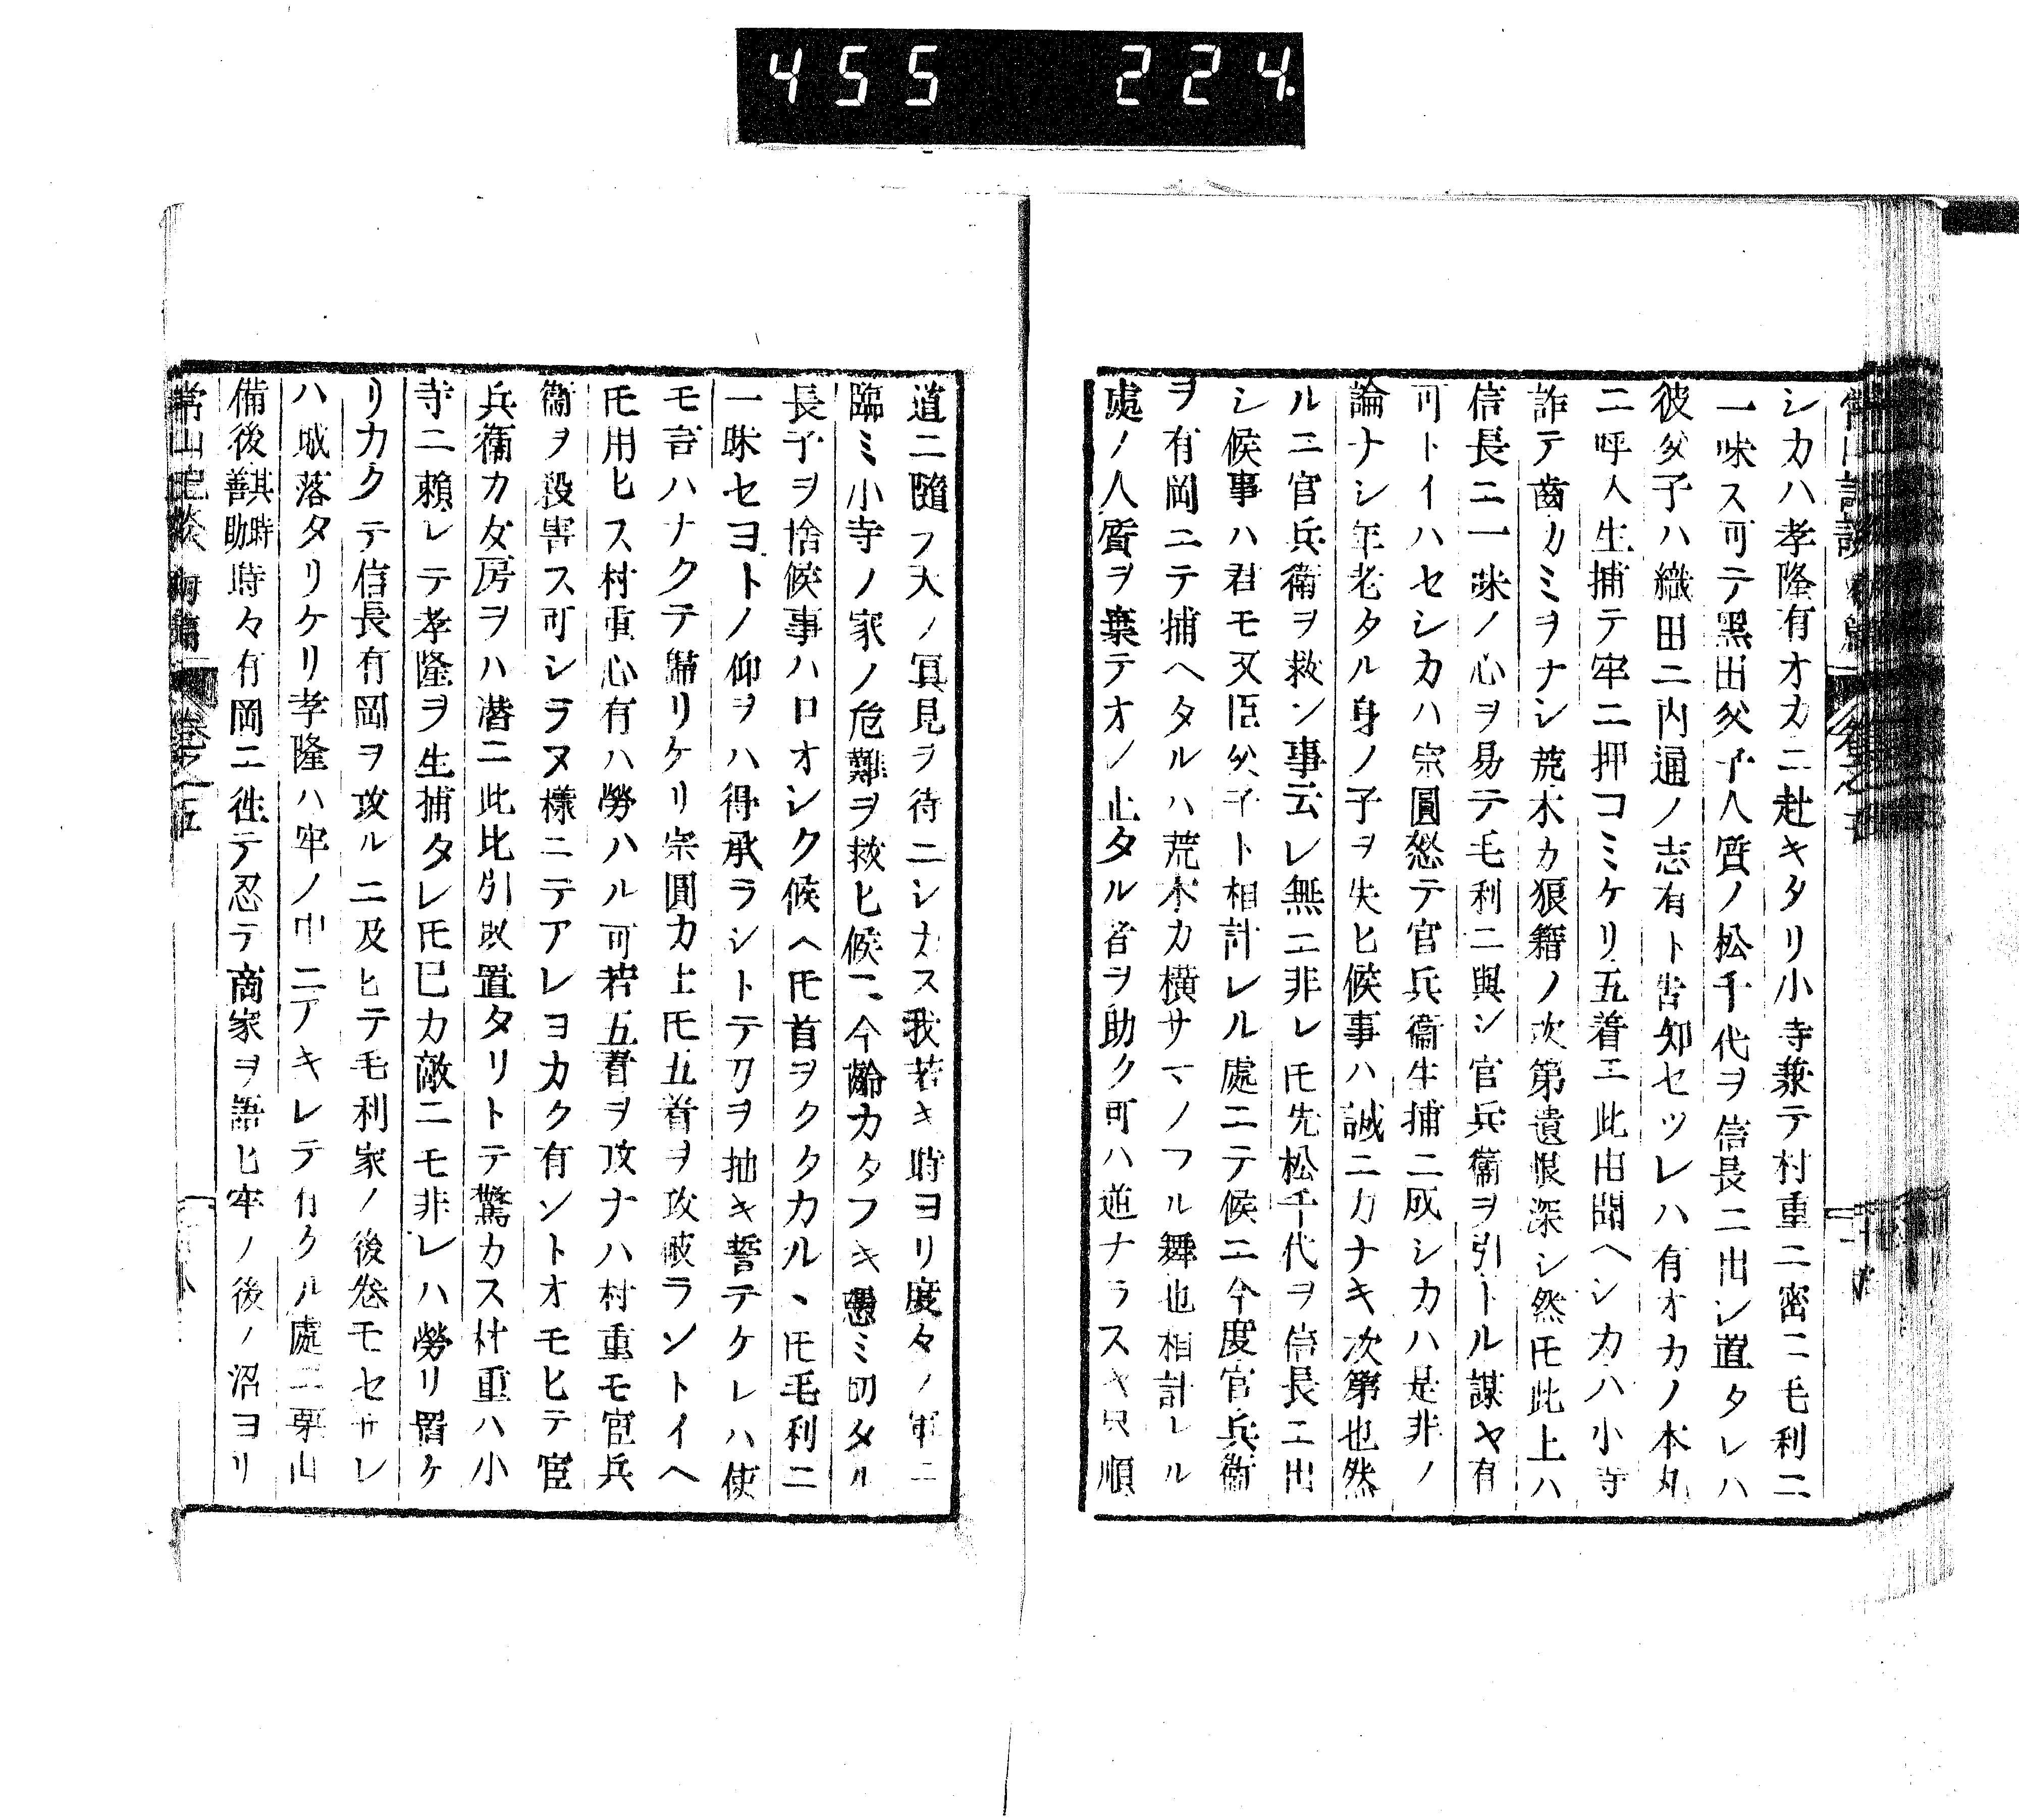 455 224.
シカハ孝隆有オカニ赴キタリ小寺兼テ村重ニ密ニ毛利ニ
一味ス可テ黒田父子人質ノ松千代ヲ信長ニ出シ置タレハ
彼父子ハ織田ニ内通ノ志有ト告知セツレハ有オカノ本丸
ニ呼入生捕テ牢ニ押コミケリ五着エ此由聞ヘシカハ小寺
詐テ齒カミヲナシ荒木カ狼籍ノ次第遺恨深シ然𪜈此上ハ
信長ニ一味ノ心ヲ易テ毛利ニ與シ官兵衞ヲ引トル謀ヤ有
可トイハセシカハ宗圓愁テ官兵衞生捕ニ成シカハ是非ノ
論ナシ年老タル身ノ子ヲ失ヒ候事ハ誠ニカナキ次第也然
ルニ官兵衞ヲ救ン事云レ無ニ非レ𪜈先松千代ヲ信長ニ出
シ候事ハ君モ又臣父子ト相計レル處ニテ候ニ今度官兵衞
ヲ有岡ニテ捕ヘタルハ荒木カ横サマノフル舞也相計レル
處ノ人質ヲ棄テオノ止タル者ヲ助ク可ハ道ナラスキ只順
道ニ隨フ天ノ冥見ヲ待ニシカス我若キ時ヨリ度々ノ軍ニ
臨ミ小寺ノ家ノ危難ヲ救ヒ候ヘ𪜈今齢カタフキ愚ミ切タル
長子ヲ捨候事ハ口オシク候ヘ𪜈首ヲクタカルヽ𪜈毛利ニ
一味セヨトノ仰ヲハ得承ラシトテ刀ヲ抽キ誓テケレハ使
モ言ハナクテ歸リケリ宗圓カ上𪜈五着ヲ攻破ラントイヘ
𪜈用ヒス村重心有ハ勞ハル可若五着ヲ攻ナハ村重モ官兵
衞ヲ殺害ス可シラヌ樣ニテアレヨカク有ントオモヒテ官
兵衞カ女房ヲハ潜ニ此比引取置タリトテ驚カス村重ハ小
寺ニ頼レテ孝隆ヲ生捕タレ𪜈己カ敵ニモ非レハ勞リ置ケ
リカクテ信長有岡ヲ攻ルニ及ヒテ毛利家ノ後巻モセサレ
ハ城落タリケリ孝隆ハ牢ノ中ニアキレテ有クル處ニ栗山
備後其時善助時々有岡ニ徃テ忍テ商家ヲ語ヒ牢ノ後ノ沼ヨリ
常山紀談 卷之五